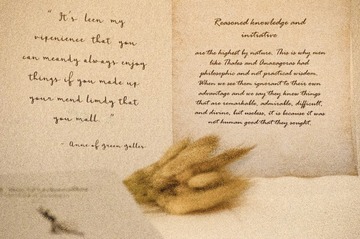 “ It's been my
experience that you
can meandy always enjoy
things if you made up
your mend limdy that
you mall. ”
- Anne of green galles.
Reasoned knowledge and
initiative
are the highest by nature. This is why men
like Thales and Anaxagoras had
philosophic and not practical wisdom.
When we see them ignorant to their own
advantage and we say they know things
that are remarkable, admirable, difficult,
and divine, but useless, it is because it was
not human good that they sought.